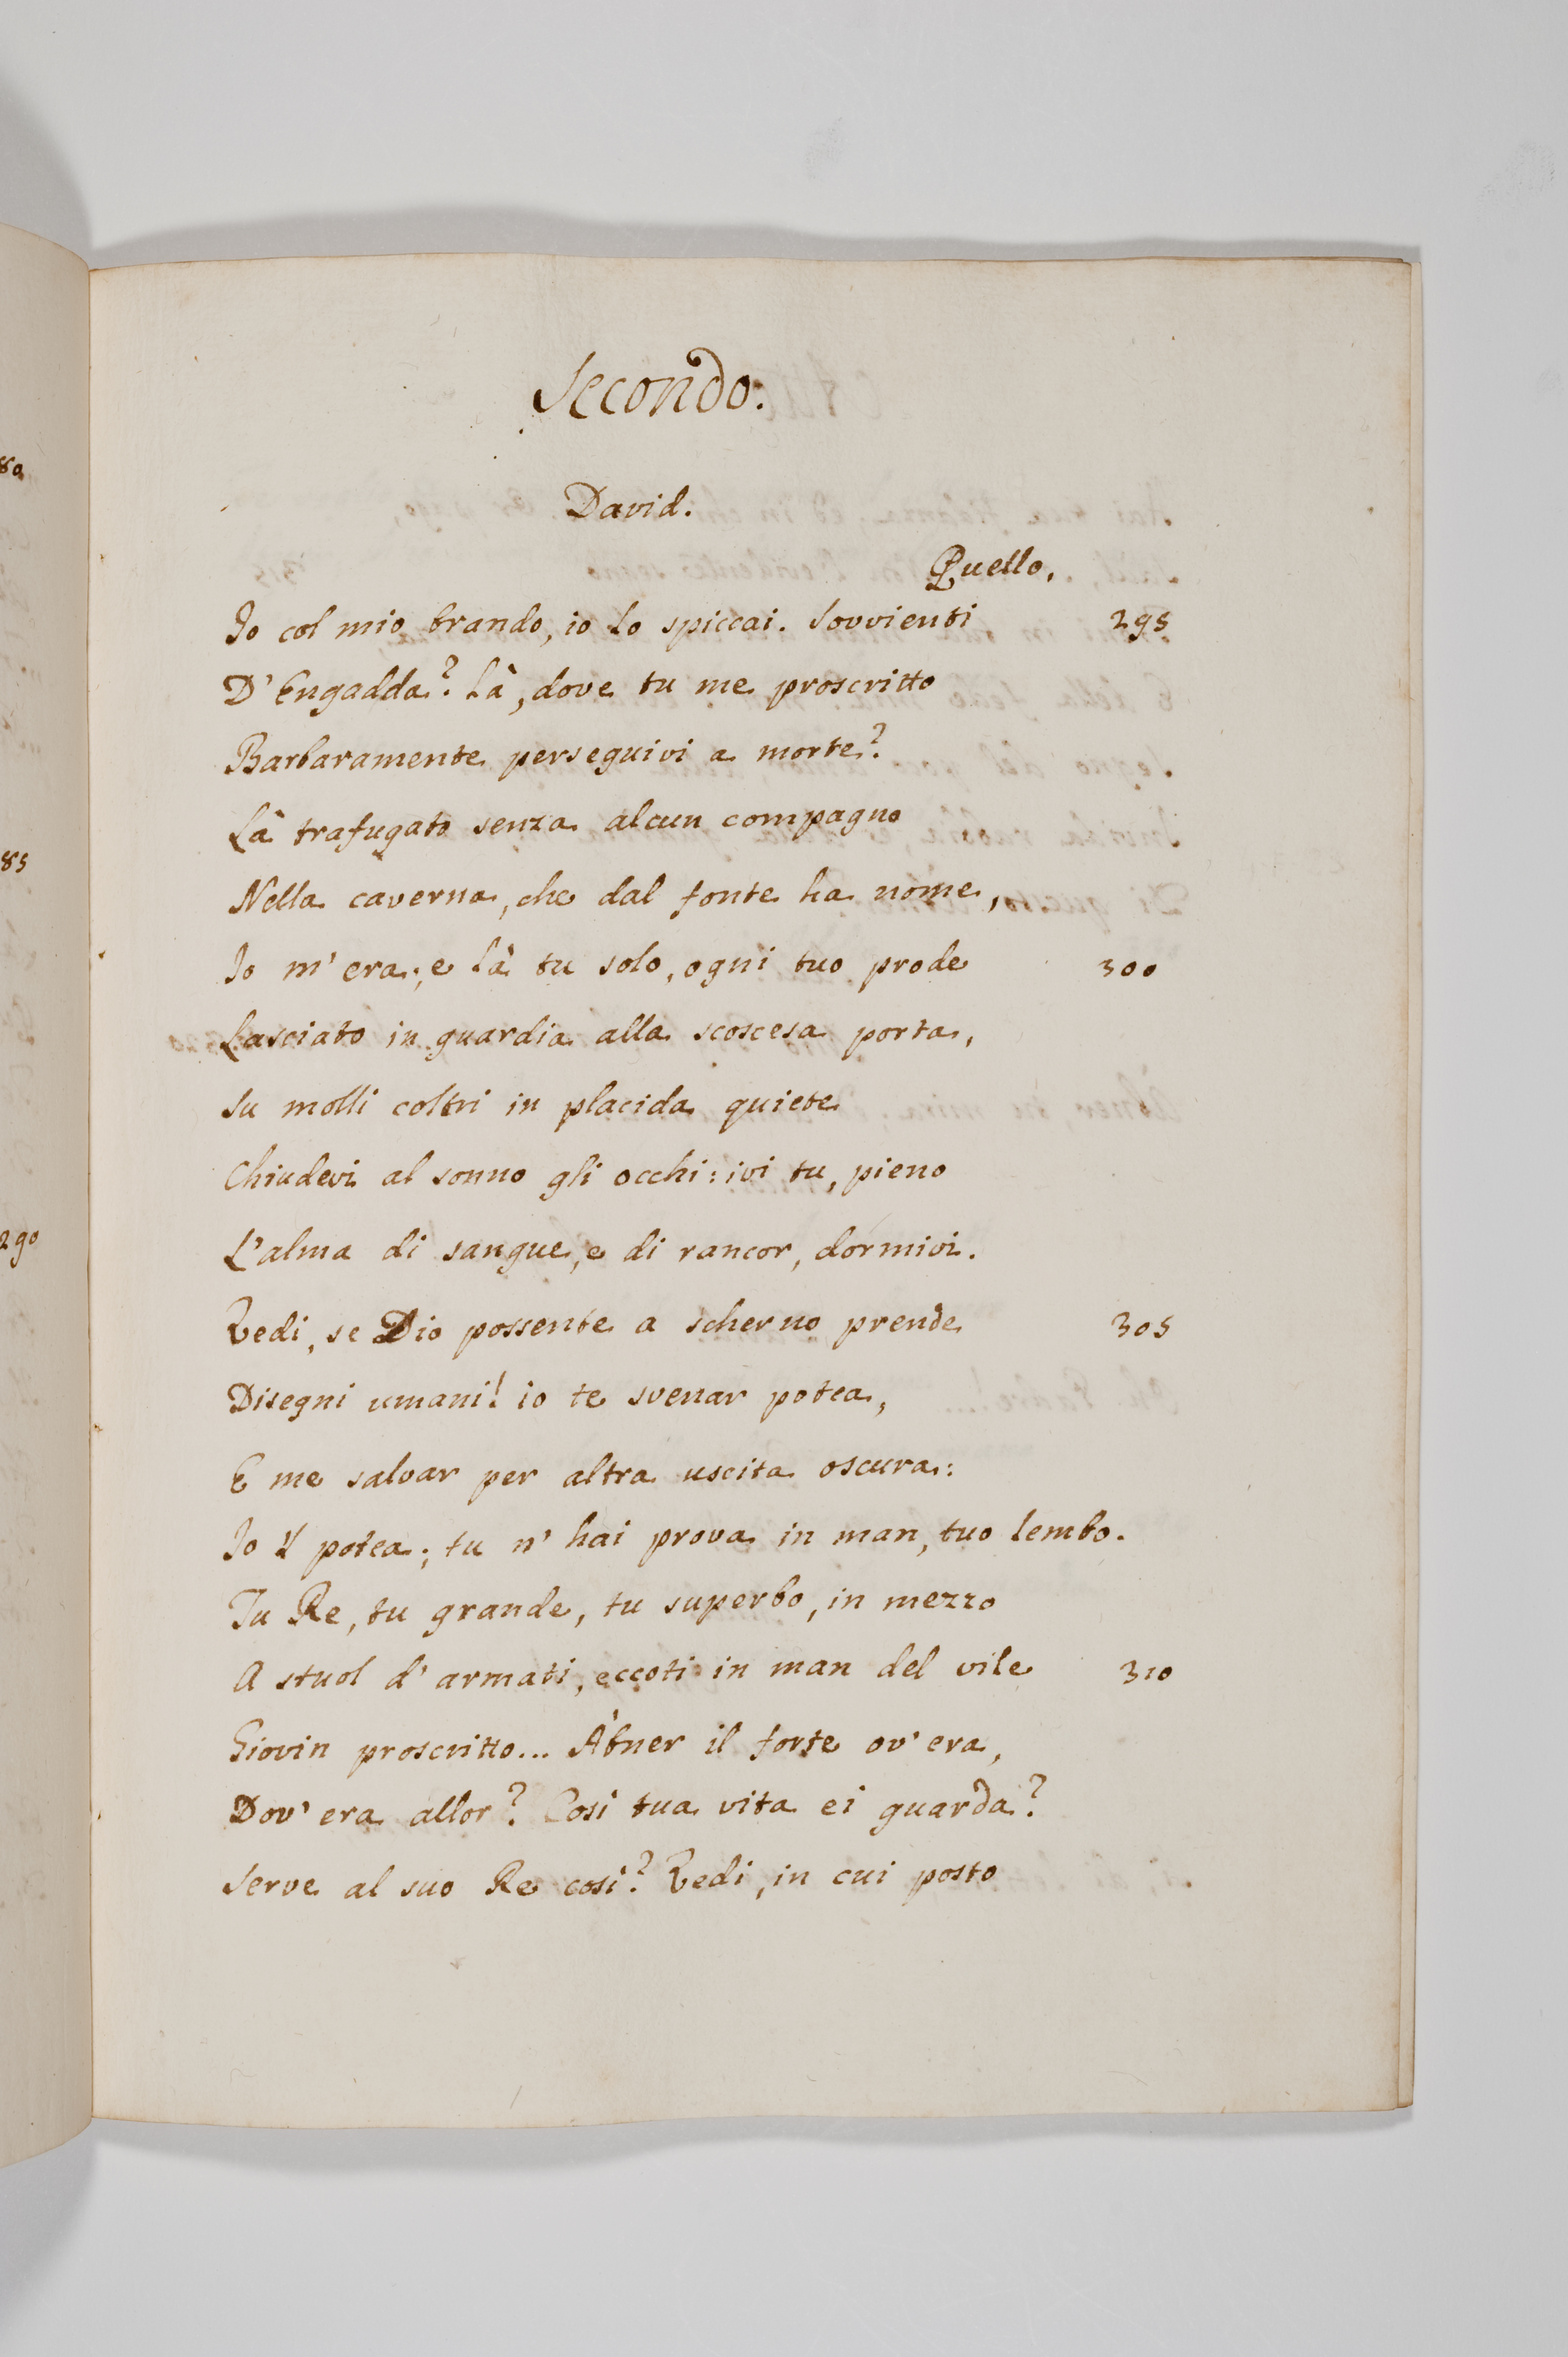 Secondo.
David.
Quello,
Io col mio brando, io lo spiccai. Sovvienti 295
D'Engadda? Là, dove tu me proscritto
Barbaramente perseguivi a morte?
Là trafugato senza alcun compagno
Nella caverna, che dal fonte ha nome,
Io m'era; e là tu solo, ogni tuo prode 300
Lasciato in guardia alla scoscesa porta,
Su molli coltri in placida quiete
Chiudevi al sonno gli occhi: ivi tu, pieno
L'alma di sangue, e di rancor, dormivi.
Vedi, se Dio possente a scherno prende 305
Disegni umani! io te svenar potea,
E me salvar per altra uscita oscura:
Io 'l potea; tu n'hai prova in man, tuo lembo.
Tu Re, tu grande, tu superbo, in mezzo
A stuol d'armati, eccoti in man del vile 310
Giovin proscritto... Àbner il forte ov'era,
Dov'era allor? Così tua vita ei guarda?
Serve al suo Re così? Vedi, in cui posto
80
85
290